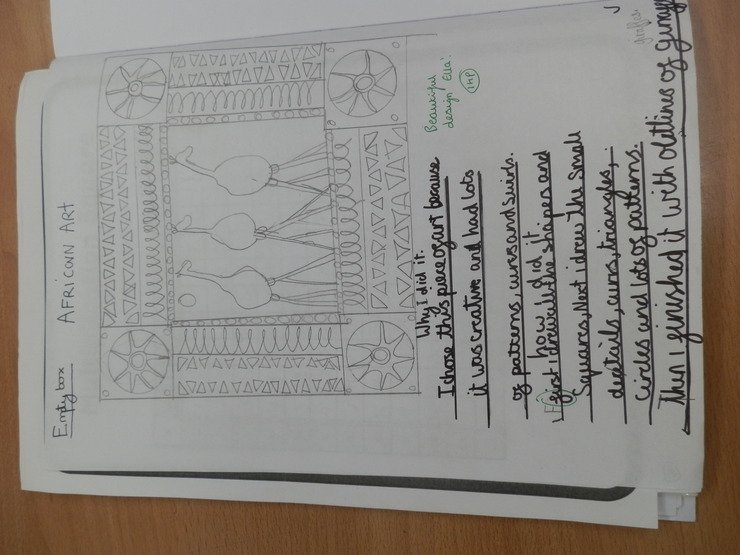 Empty box
AFRICOWN ART
Beautiful
design Ella!
1HP
Why I did it.
I chose this piece of art because
it was creative and had lots
of patterns, curves and swirls.
how I did it
first I drew all the shapes and
squares. Next I drew the small
deatails, curvs, triangles,
circles and lots of patterns.
Then I finished it with oletlines of giraffs